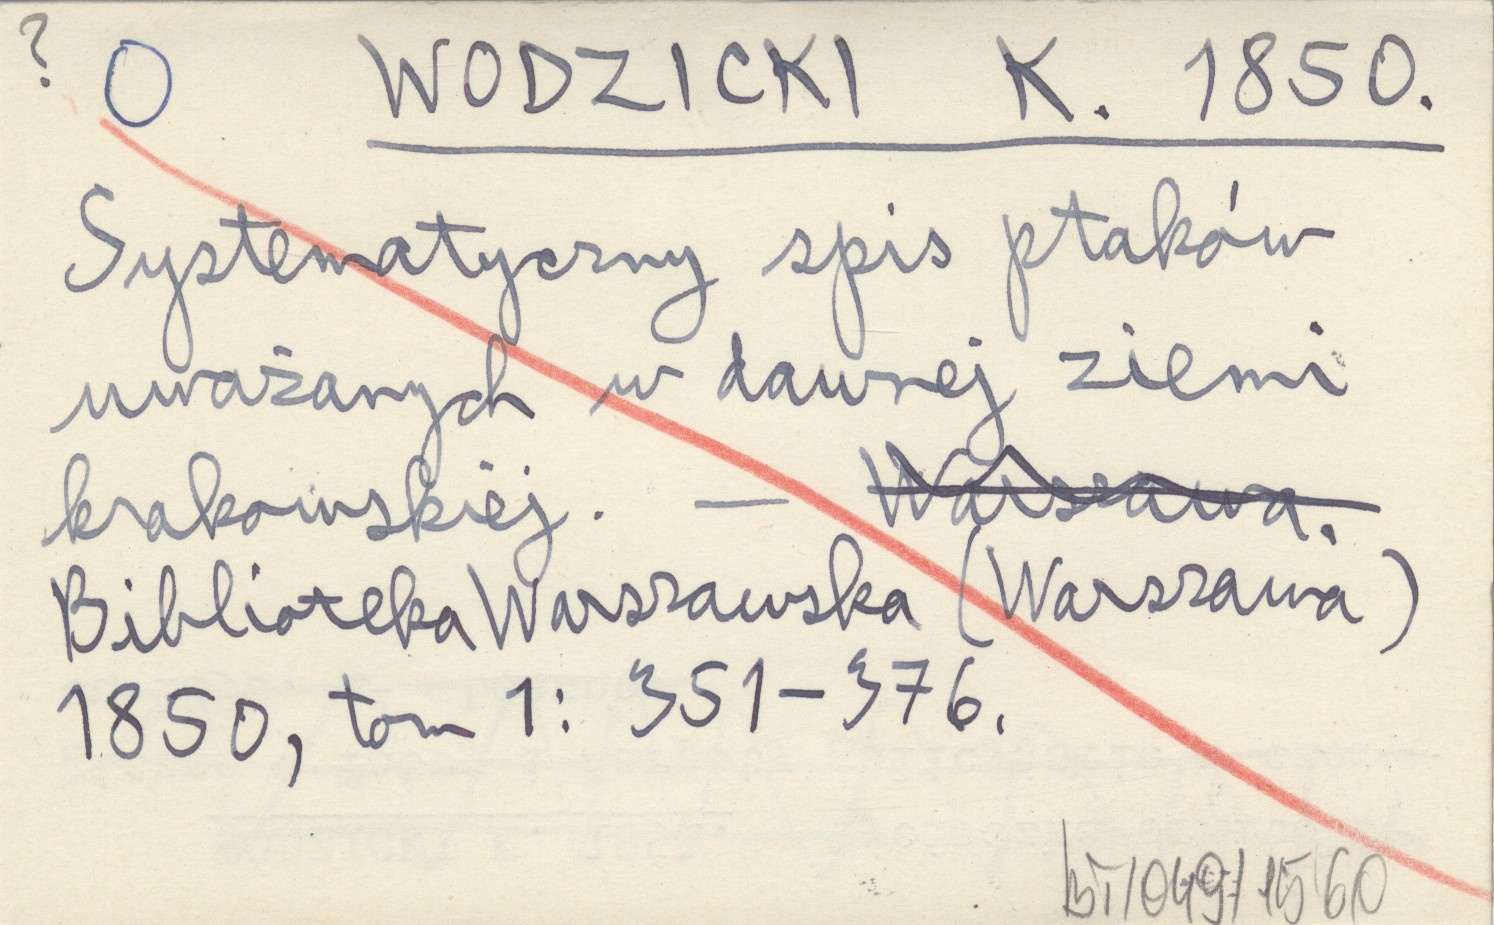 ? O WODZICKI K. 1850.
Systematyczny spis ptaków
uważanych w dawnej ziemi
krakowskiéj. — Warszawa.
Biblioteka Warszawska (Warszawa)
1850, tom 1: 351-376.
BT/049/1560